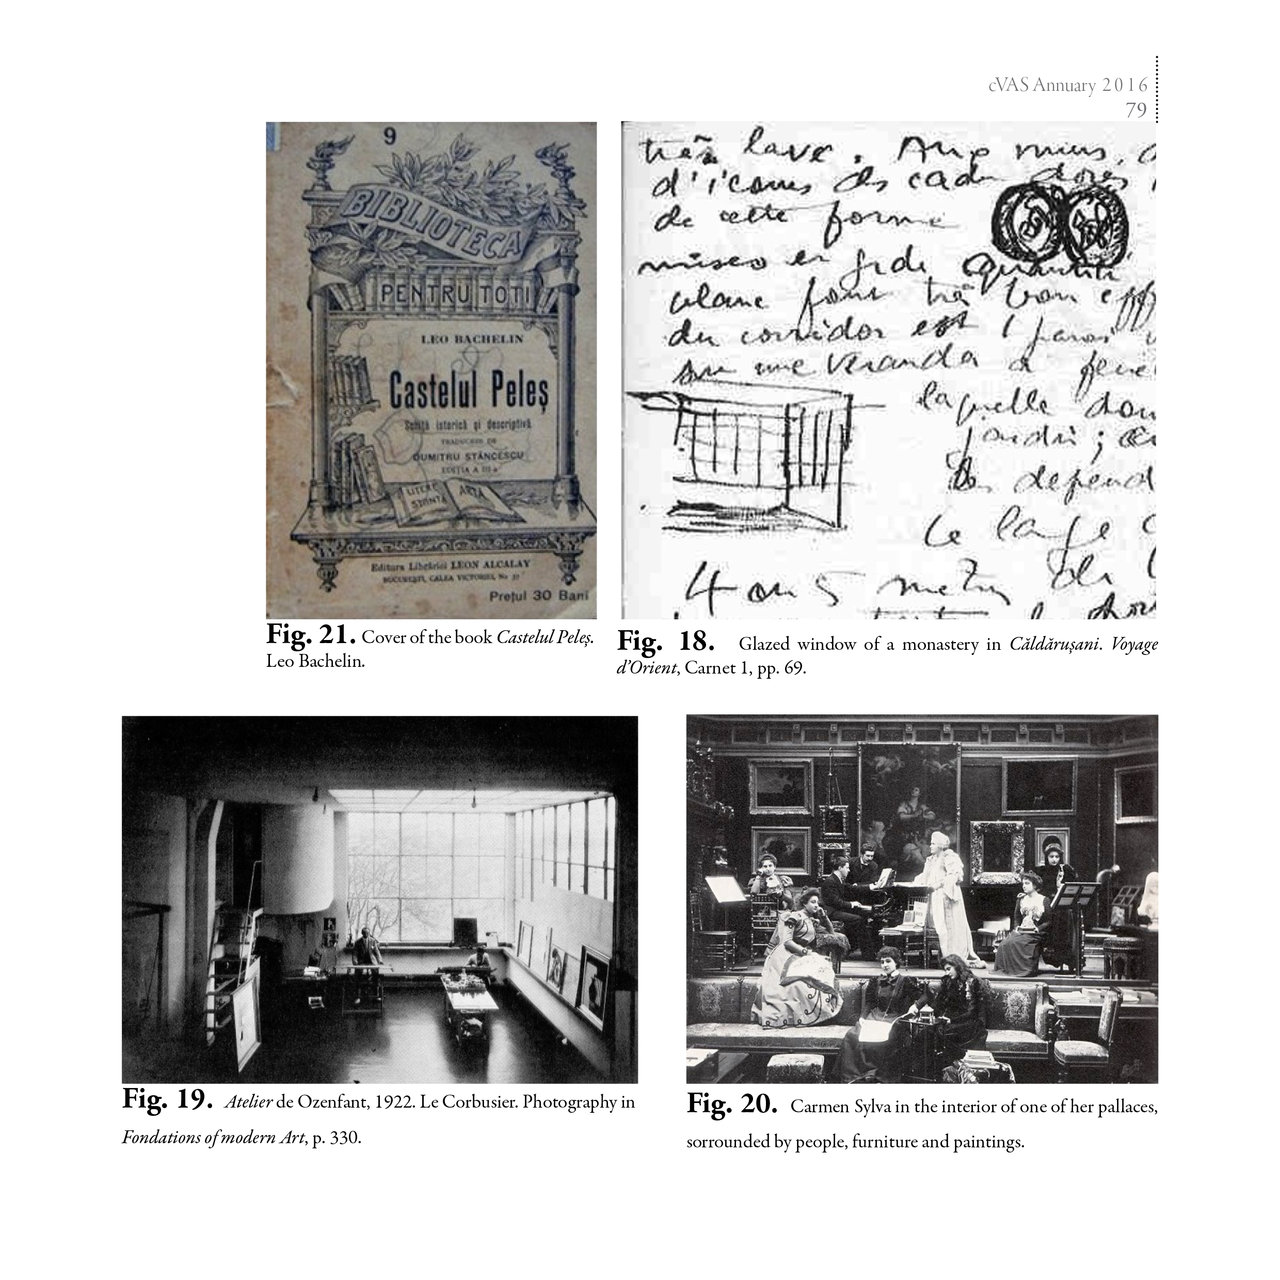 cVAS Annuary 2016
79
9
BIBLIOTECA
PENTRU TOTI
LEO BACHELIN
Castelul Peleș
Schiță istorică și descriptivă
TRADUCERE DE
DUMITRU STĂNCESCU
EDIȚIA A III-a
LITERE
ȘTIINȚĂ
ARTĂ
Editura Librăriei LEON ALCALAY
BUCUREȘTI, CALEA VICTORIEI, No 37
Prețul 30 Bani
Fig. 21. Cover of the book Castelul Peleș.
Leo Bachelin.
très lavé.
d'icones ds cadres dorés
de cette forme
blanc font très bon eff
du corridor est
sur une veranda à
laquelle
jardin ;
Le large
4 ou 5 metres
Fig. 18. Glazed window of a monastery in Căldărușani. Voyage
d'Orient, Carnet 1, pp. 69.
Fig. 19. Atelier de Ozenfant, 1922. Le Corbusier. Photography in
Fondations of modern Art, p. 330.
Fig. 20. Carmen Sylva in the interior of one of her pallaces,
sorrounded by people, furniture and paintings.